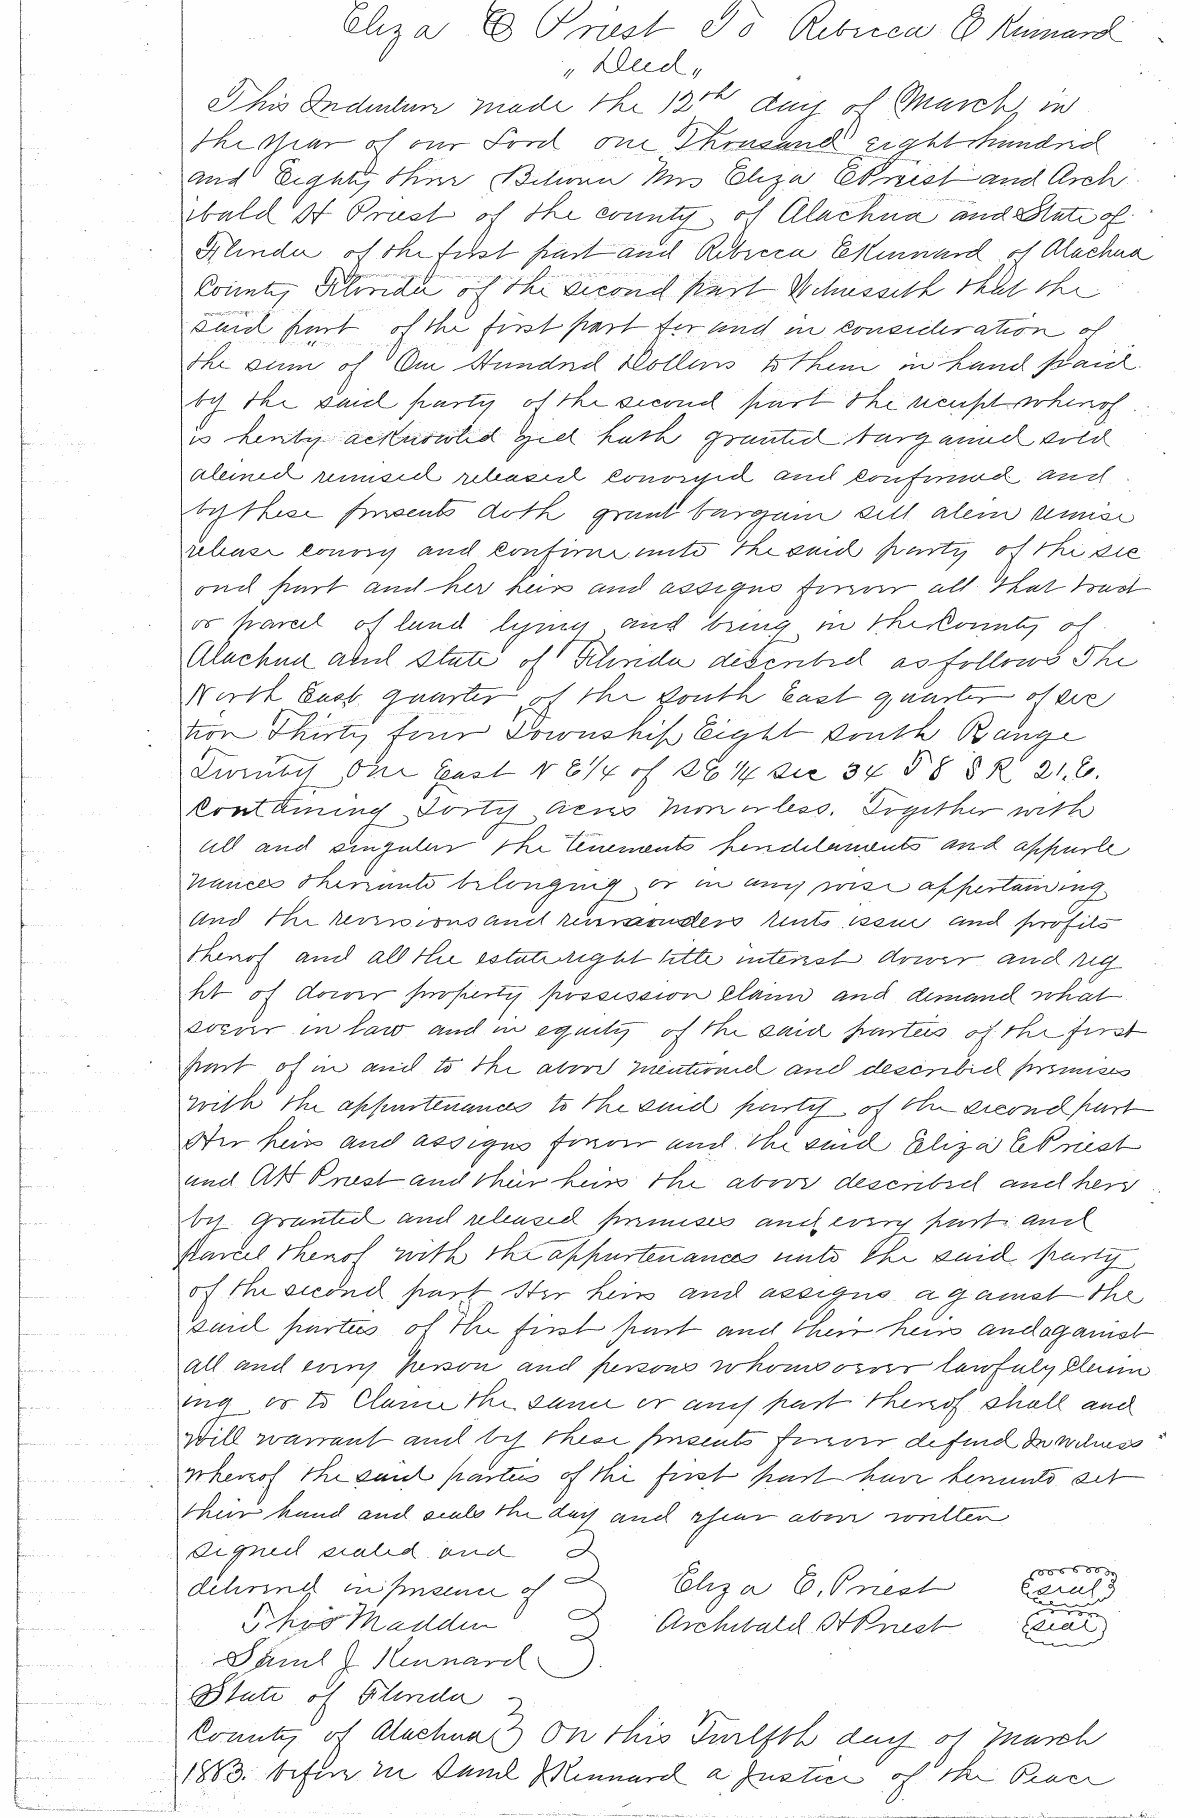 Eliza E Priest To Rebecca E Kennard
"Deed"
This Indenture made the 12th day of March in
the year of our Lord one Thousand eight hundred
and Eighty three Between Mrs Eliza E Priest and Arch
ibald H Priest of the county of Alachua and State of
Florida of the first part and Rebecca E Kennard of Alachua
County Florida of the second part Witnesseth that the
said part of the first part for and in consideration of
the sum of One Hundred Dollers to them in hand paid
by the said party of the second part the receipt whereof
is herity acknowled ged hath granted bargained sold
aleined remised released conveyed and confirmed and
by these presents doth grant bargain sell alein remise
release convey and confirm unto the said party of the sec
ond part and her heirs and assigns forever all that tract
or parcel of land lying and being in the County of
Alachua and State of Florida described as follows The
North East quarter of the South East quarter of sec
tion Thirty four Township Eight South Range
Twenty One East N E 1/4 of S E 1/4 Sec 34 T 8 S R 21. E.
Containing Forty acres more or less. Together with
all and singular the tenements hendilaments and appurte
nances thereunto belonging or in any wise appertaining
and the reversions and remainders rents issue and profits
thereof and all the estate right title interest dower and rig
ht of dower property possession claim and demand what
soever in law and in equity of the said parties of the first
part of in and to the above mentioned and described premises
with the appurtenances to the said party of the second part
Her heirs and assigns forever and the said Eliza E Priest
and A H Priest and their heirs the above described and here
by granted and released premises and every part and
parcel thereof with the appurtenances unto the said party
of the second part Her heirs and assigns against the
said parties of the first part and their heirs and against
all and every person and persons whomsoever lawfuly claim
ing or to Claim the same or any part thereof shall and
will warrant and by these presents forever defend In witness
whereof the said parties of the first part have hereunto set
their hand and seals the day and year above written
Signed sealed and
delivered in presence of Eliza E. Priest (seal)
Thos Madden Archibald H Priest (seal)
Saml J Kennard
State of Florida
County of Alachua } On this Twelfth day of March
1883. before me Saml J Kennard a Justice of the Peace